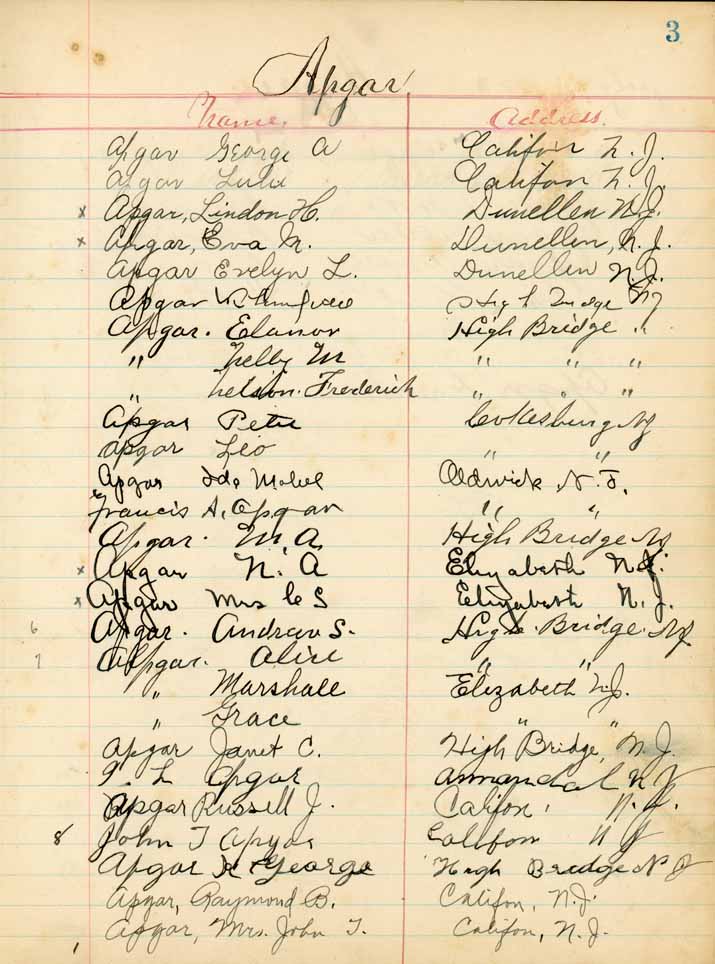 3
Apgar
Name. Address.
Apgar George A Califon N. J.
Apgar Lulu Califon N. J.
x Apgar, Lindon H. Dunellen N.J.
x Apgar, Eva M. Dunellen, N. J.
Apgar Evelyn L. Dunellen N.J.
Apgar High Bridge NJ
Apgar. Elanor High Bridge "
" Nelly M " " "
" Nelson. Frederick " " "
Apgar Peter Cokesburg NJ
Apgar Leo " "
Apgar Ida Mabel Oldwick N. J.
Francis A. Apgar " "
Apgar. M A High Bridge NJ
x Apgar N. A Elizabeth N.J.
x Apgar Mrs C S Elizabeth N. J.
6 Apgar. Andrew S. High. Bridge. NJ
7 Apgar. Alice " "
" Marshall Elizabeth N.J.
" Grace " "
Apgar Janet C. High Bridge, N. J.
L Apgar Annandal N J
Apgar Russell J. Califon, N. J.
8 John T Apgar Califon N J
Apgar George High Bredge N J
Apgar, Raymond B. Califon, N.J.
Apgar, Mrs. John T. Califon, N. J.